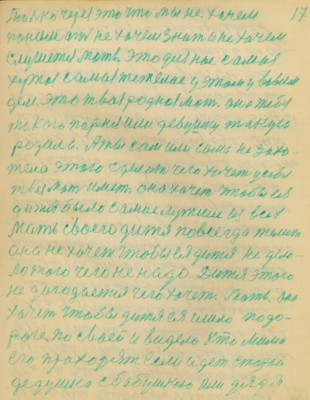 17
только через это что мы не хочем
понимать не хочем знать не хочем
слушется мать. Это для нас самая
самая тежелая у этому вовсем
дем. это твоя родная мать. она тебя
такого парня или девушку такую
родила. А ты сам или сама не захо-
тела этого сделать чего хочет у себя
твоя мать иметь. она хочет чтобы ея
дитя было самое лутшеи из всех
мать своего дитя повсегда только
она не хочет чтобы ея дитя не дела-
ло того чего не надо. Дитя этого
не догодается чего хочет. Мать она
хочет чтобы дитя ея ишло подо-
роге по своей и видело кто мимо
его проходят если идет старой
дедушка с бабушкою или дядя